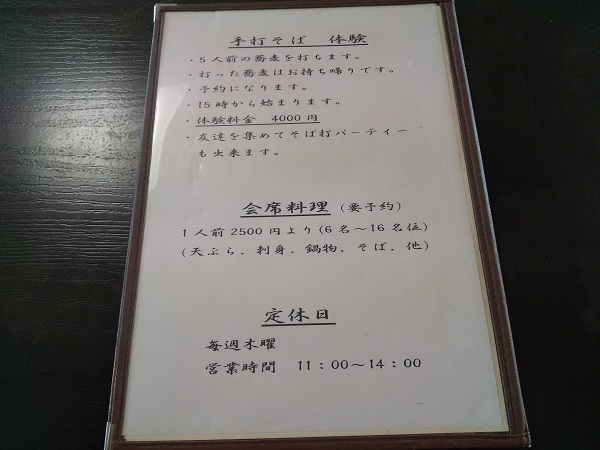 手打そば 体験
・５人前の蕎麦を打ちます。
・打った蕎麦はお持ち帰りです。
・予約になります。
・15時から始まります。
・体験料金 4000円
・友達を集めてそば打パーティー
も出来ます。
会席料理（要予約）
1人前2500円より(6名～16名位)
(天ぷら．刺身．鍋物．そば．他)
定休日
毎週木曜
営業時間 11：00～14：00